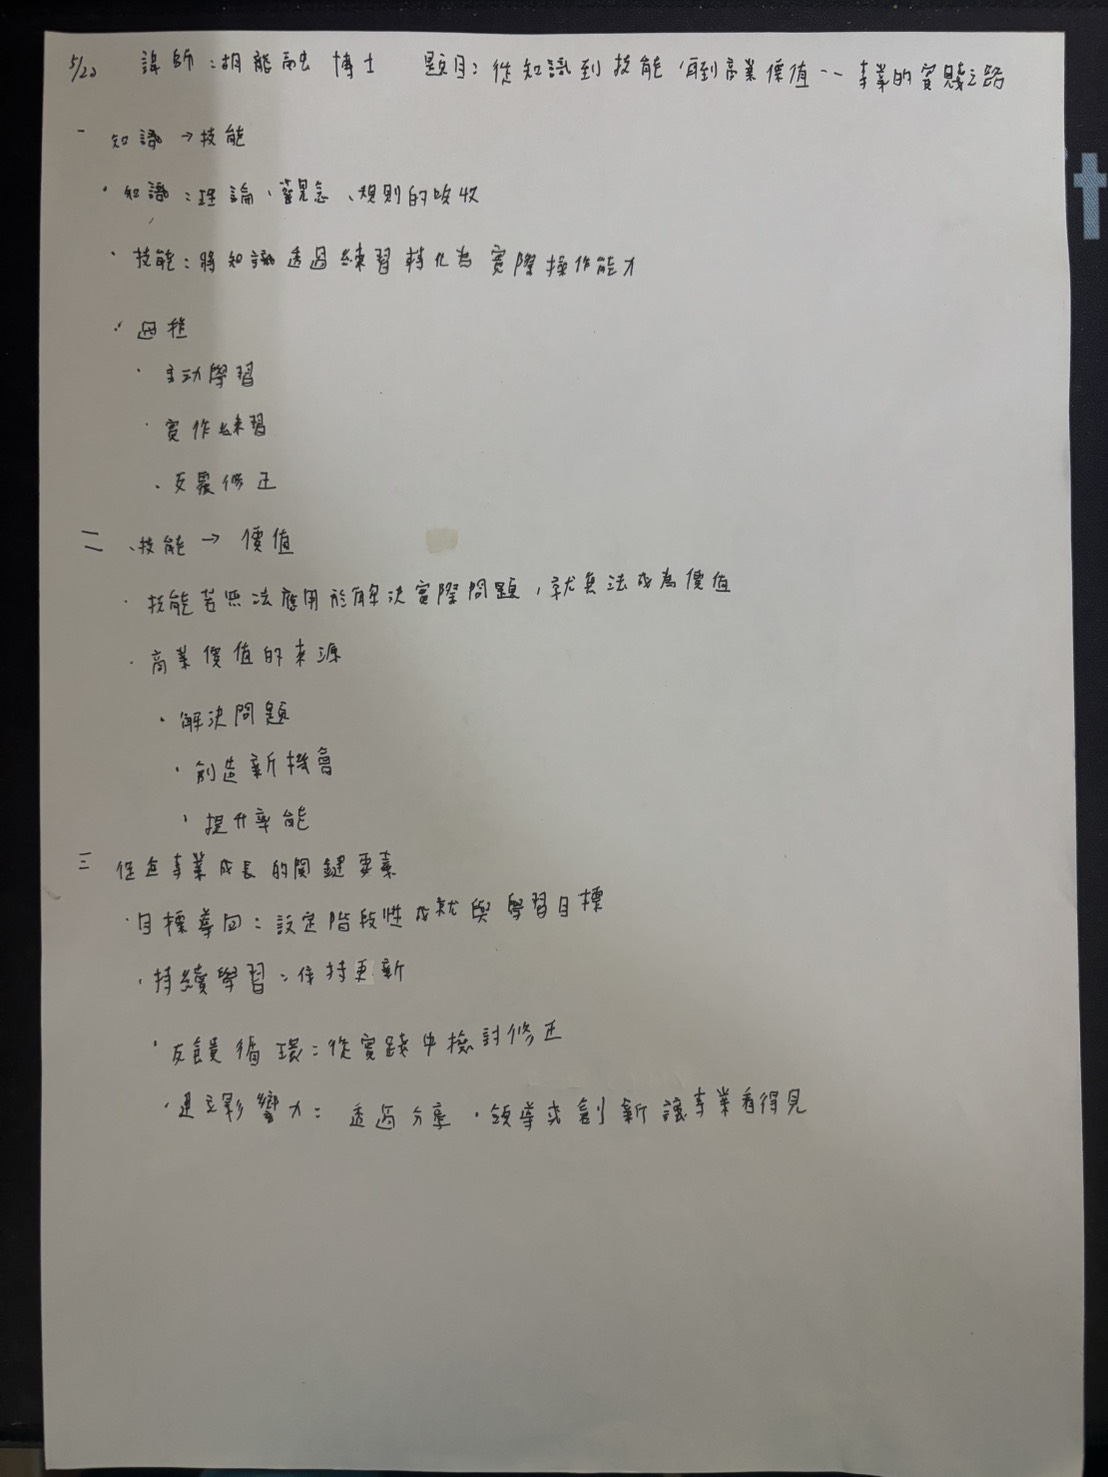 5/20 講師:胡龍融 博士 題目:從知識到技能,再到商業價值--事業的實踐之路
一 知識→技能
・知識:理論、觀念、規則的吸收
・技能:將知識透過練習轉化為實際操作能力
・過程
・主動學習
・實作練習
・反覆修正
二、技能→價值
・技能若無法應用於解決實際問題,就無法成為價值
・商業價值的來源
・解決問題
・創造新機會
・提升率能
三 促進事業成長的関鍵要素
・目標導向:設定階段性成就與學習目標
・持續學習:保持更新
・反饋循環:從實踐中檢討修正
・建立影響力:透過分享、領導或創新讓事業看得見
t